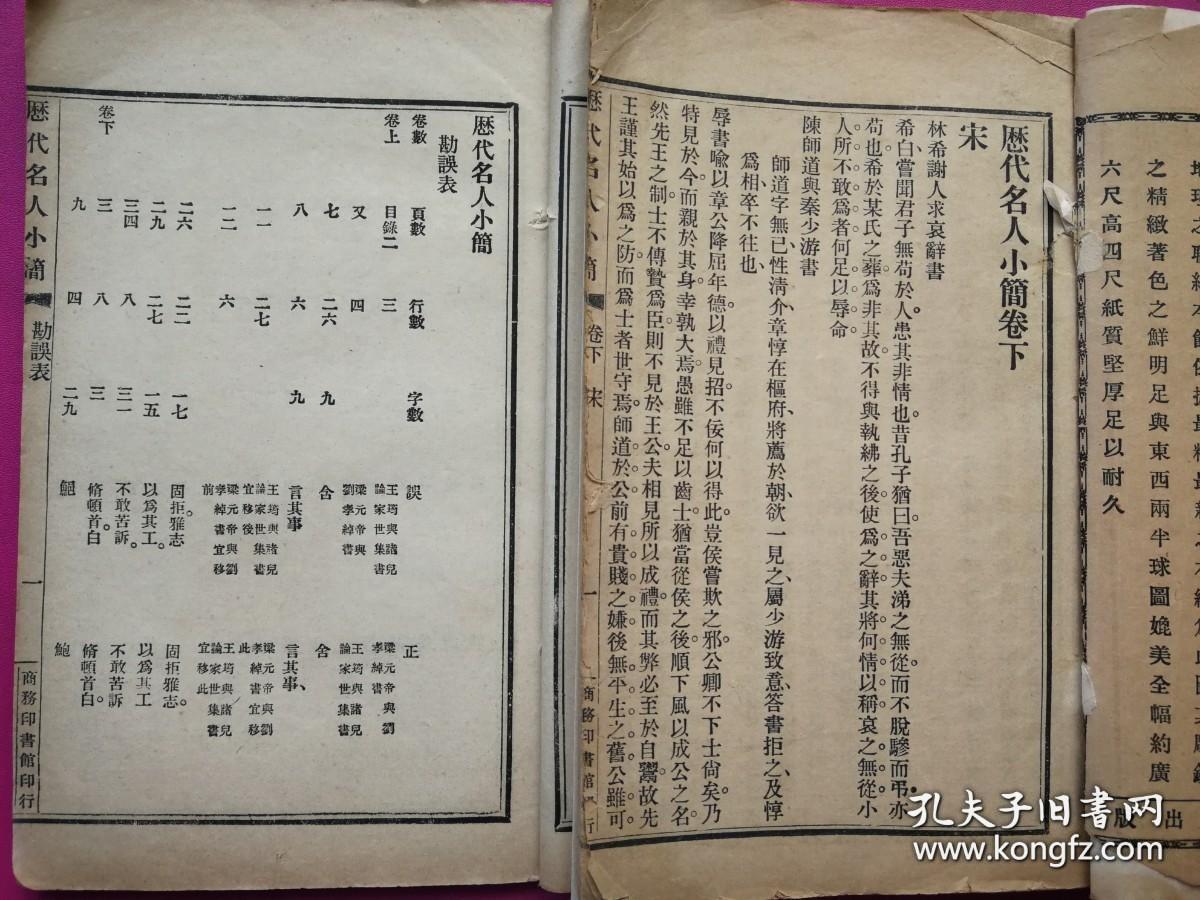 之精緻著色之鮮明足與東西兩半球圖媲美全幅約廣
六尺高四尺紙質堅厚足以耐久
出版
歷代名人小簡卷下
宋
林希謝人求哀辭書
希白、嘗聞君子無苟於人。患其非情也。昔孔子猶曰。吾惡夫涕之無從。而不脫驂而弔。亦
苟也。希於某氏之葬。爲非其故。不得與執紼之後。使爲之辭。其將何情以稱哀之無從。小
人所不敢爲者。何足以辱命。
陳師道與秦少游書
師道字無已、性清介、章惇在樞府、將薦於朝、欲一見之、屬少游致意、答書拒之、及惇
爲相、卒不往也、
辱書。喩以章公降屈年德。以禮見招。不佞何以得此。豈侯嘗欺之邪。公卿不下士尙矣。乃
特見於今。而親於其身。幸孰大焉。愚雖不足以齒士。猶當從侯之後。順下風以成公之名。
然先王之制。士不傳贄爲臣。則不見於王公。夫相見所以成禮。而其弊必至於自鬻。故先
王謹其始以爲之防。而爲士者世守焉。師道於公。前有貴賤之嫌。後無平生之舊。公雖可
歷代名人小簡 卷下 宋 一 商務印書館印行
歷代名人小簡
勘誤表
卷數 頁數 行數 字數 誤 正
卷上 目錄二 三 王筠與諸兒論家世集書 梁元帝與劉孝綽書
又 四 梁元帝與劉孝綽書 王筠與諸兒論家世集書
七 二六 九 舍 舍
八 六 九 言其事 言其事、
一一 二七 王筠與諸兒論家世集書宜移後 梁元帝與劉孝綽書宜移此
一二 六 梁元帝與劉孝綽書宜移前 王筠與諸兒論家世集書宜移此
二六 二二 一七 固拒雅志 固拒雅志。
二九 二七 一五 以爲其工。 以爲其工
三四 八 三一 不敢苦訴。 不敢苦訴
卷下 三 八 三 脩頓首白 脩頓首白。
九 四 二九 鮑
歷代名人小簡 勘誤表 一 商務印書館印行
孔夫子旧书网
www.kongfz.com